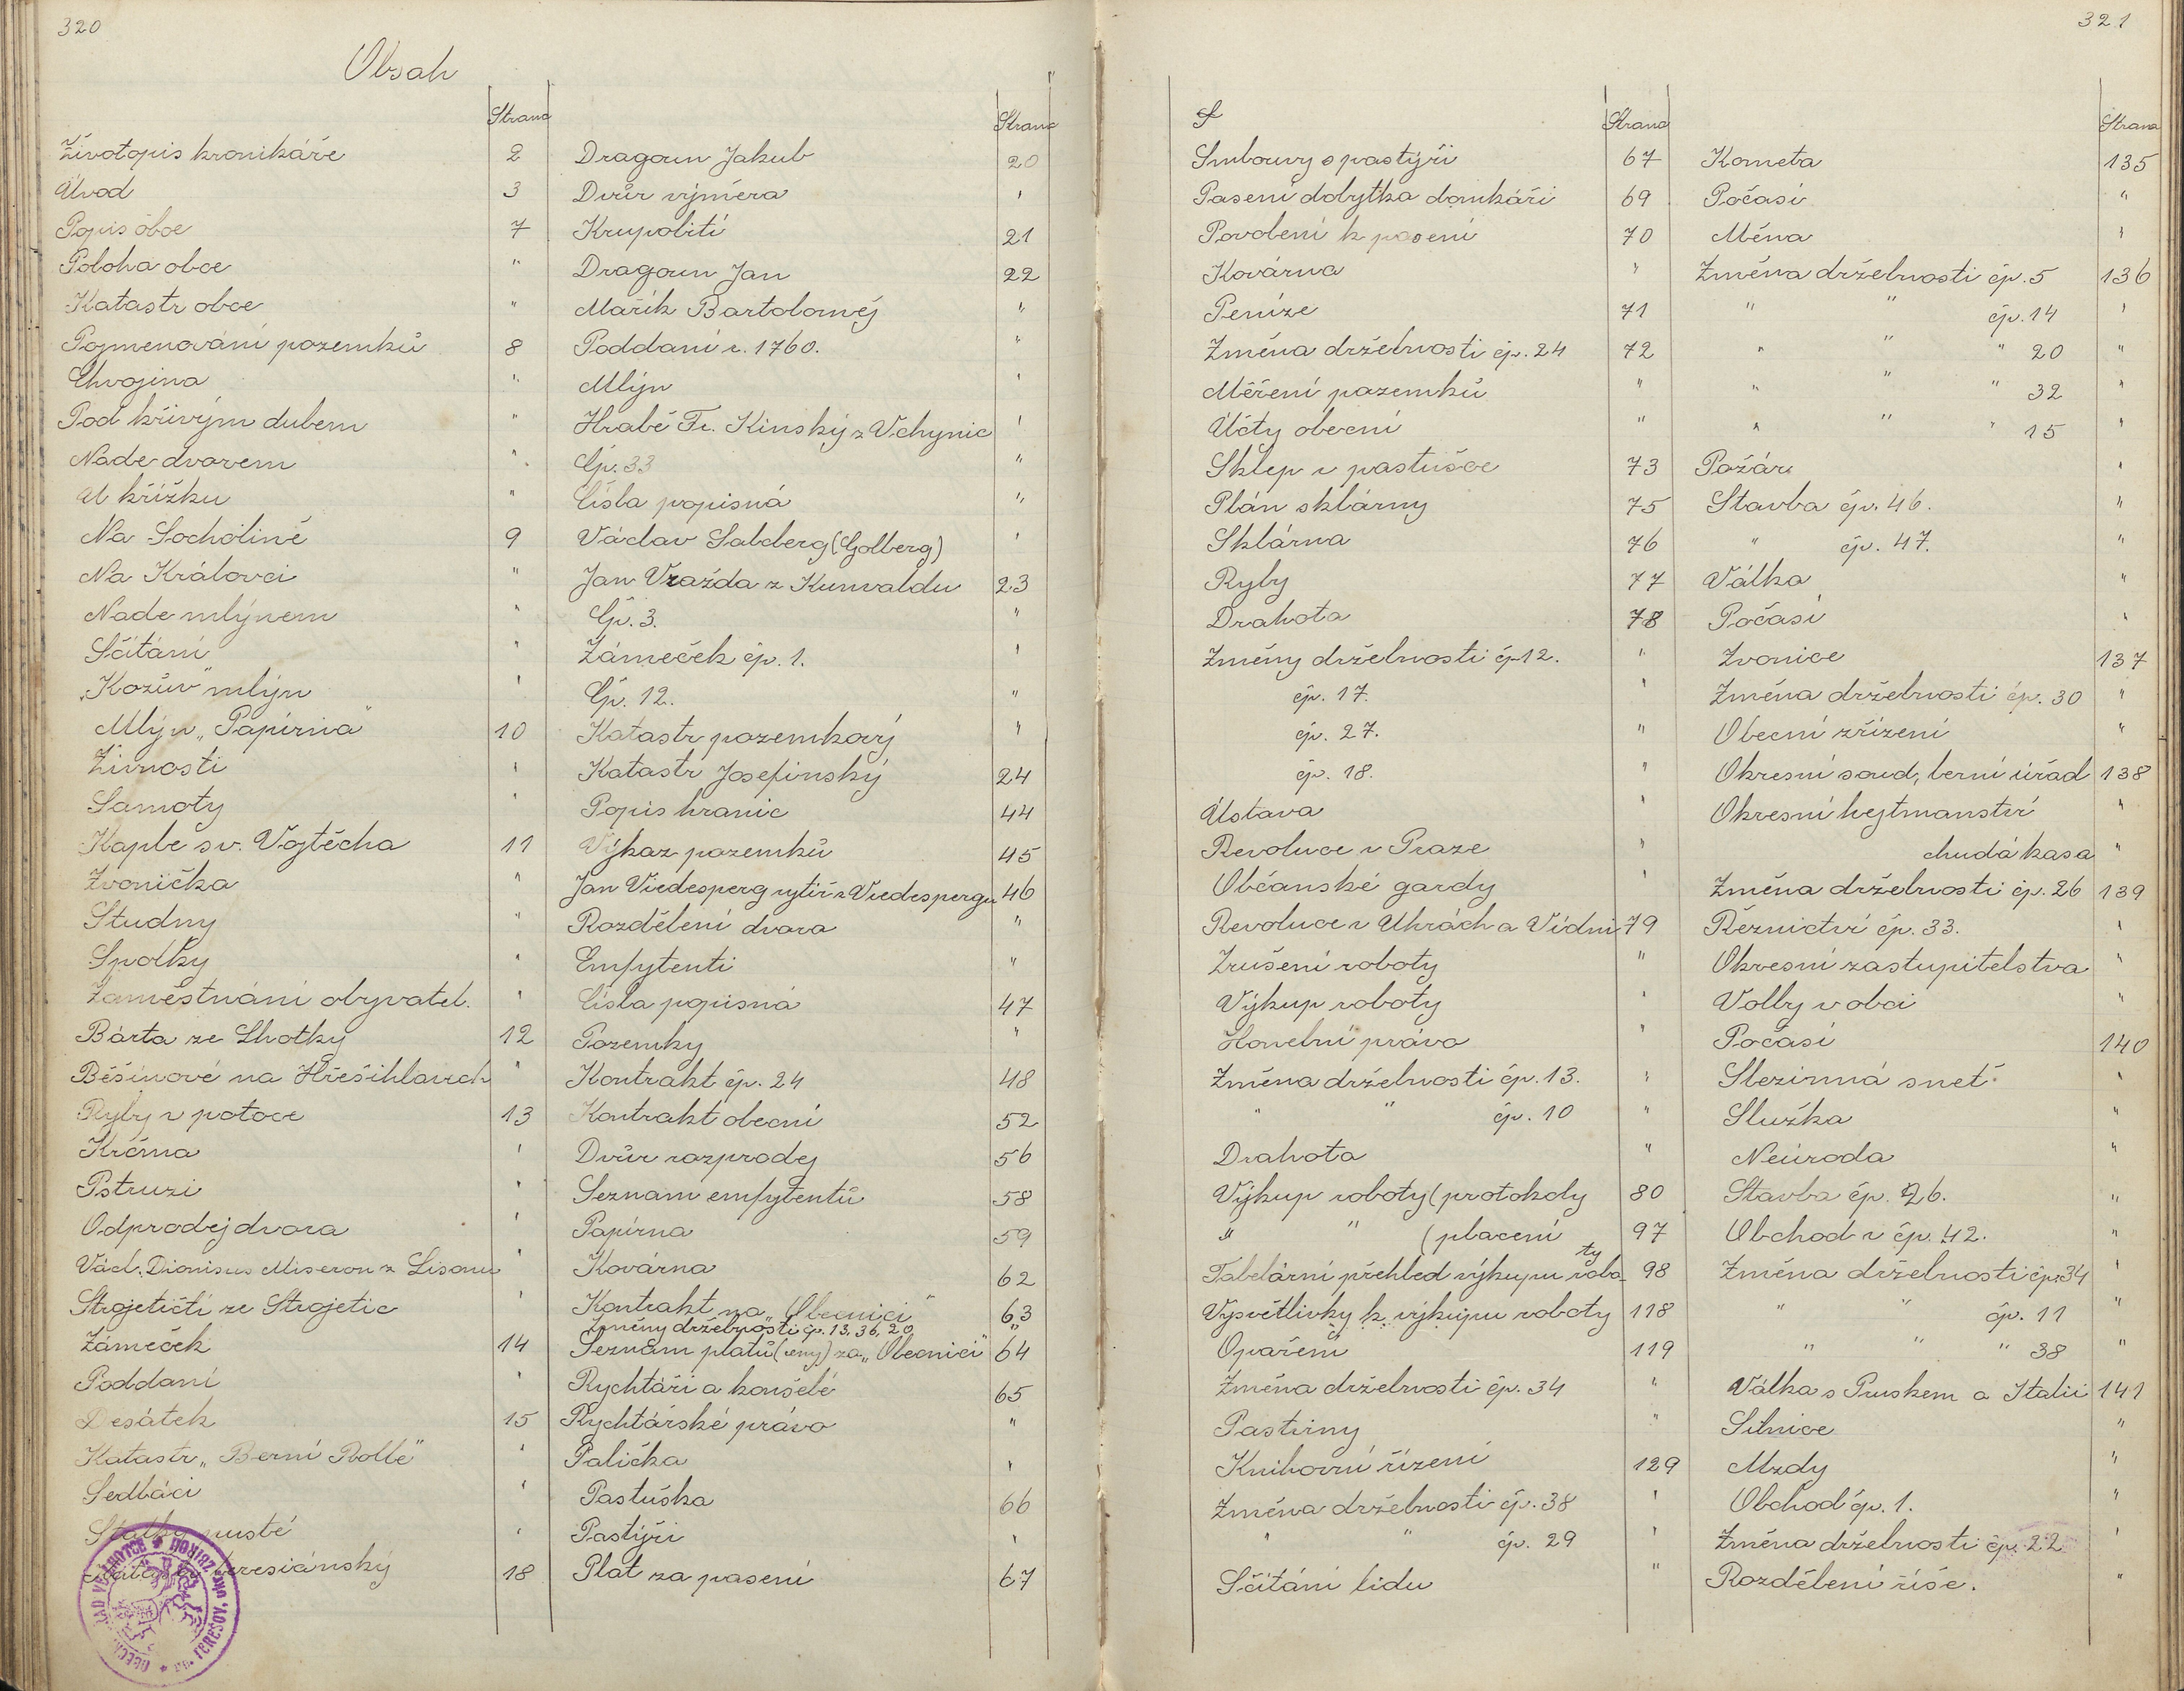 320
Obsah
Strana
Životopis kronikáře 2
Úvod 3
Popis obce 7
Poloha obce "
Katastr obce "
Pojmenování pozemků 8
Chvojina "
Pod křivým dubem "
Nade dvorem "
U křížku "
Na Socholině 9
Na Královci "
Nade mlýnem "
Sčítání "
"Kozův" mlýn "
Mlýn "Papírna" 10
Živnosti "
Samoty "
Kaple sv. Vojtěcha 11
Zvonička "
Studny "
Spolky "
Zaměstnání obyvatel. "
Bárta ze Lhotky 12
Běšinové na Hřešihlavech "
Ryby v potoce 13
Krčma "
Pstruzi "
Odprodej dvora "
Václ. Dionisus Miseron z Lisonu "
Strojetičtí ze Strojetic "
Zámeček 14
Poddaní "
Desátek 15
Katastr "Berní Rolle" "
Sedláci "
Statky pusté "
teresiánský 18
Strana
Dragoun Jakub 20
Dvůr výměra "
Krupobití 21
Dragoun Jan 22
Mařík Bartoloměj "
Poddaní r. 1760. "
Mlýn "
Hrabě Fr. Kinský z Vchynic "
Čp. 33 "
Čísla popisná "
Václav Salderg (Golberg) "
Jan Vražda z Kunvaldu 23
Čp. 3. "
Zámeček čp. 1. "
Čp. 12. "
Katastr pozemkový "
Katastr Josefinský 24
Popis hranic 44
Výkaz pozemků 45
Jan Viedesperg rytíř z Viedespergu 46
Rozdělení dvora "
Emfytenti "
Čísla popisná 47
Pozemky "
Kontrakt čp. 24 48
Kontrakt obecní 52
Dvůr rozprodej 56
Seznam emfytentů 58
Papírna 59
Kovárna 62
Kontrakt na "Obecnici" 63
Změny držebnosti čp. 13, 36, 20 "
Seznam platů (ceny) za "Obecnici" 64
Rychtáři a konšelé 65
Rychtářské právo "
Palička "
Pastuška 66
Pastýři "
Plat za pasení 67
321
S
Strana
Smlouvy s pastýři 67
Pasení dobytka domkáři 69
Povolení k pasení 70
Kovárna "
Peníze 71
Změna držebnosti čp. 24 72
Měření pozemků "
Účty obecní "
Sklep v pastušce 73
Plán sklárny 75
Sklárna 76
Ryby 77
Drahota 78
Změny držebnosti čp 12. "
čp. 17. "
čp. 27. "
čp. 18. "
Ústava "
Revoluce v Praze "
Občanské gardy "
Revoluce v Uhrách a Vídni 79
Zrušení roboty "
Výkup roboty "
Honební právo "
Změna držebnosti čp. 13. "
" " čp. 10 "
Drahota "
Výkup roboty (protokoly 80
" " (placení 97
Tabelární přehled výkupu roboty 98
Vysvětlivky k výkupu roboty 118
Opaření 119
Změna držebnosti čp. 34 "
Pastviny "
Knihovní řízení 129
Změna držebnosti čp. 38 "
" " čp. 29 "
Sčítání lidu "
Strana
Kometa 135
Počasí "
Měna "
Změna držebnosti čp. 5 136
" " čp. 14 "
" " " 20 "
" " " 32 "
" " " 15 "
Požár "
Stavba čp. 46. "
" čp. 47. "
Válka "
Počasí "
Zvonice 137
Změna držebnosti čp. 30 "
Obecní zřízení "
Okresní soud, berní úřad 138
Okresní hejtmanství "
chudá kasa "
Změna držebnosti čp. 26 139
Řeznictví čp. 33. "
Okresní zastupitelstva "
Volby v obci "
Počasí 140
Slezinná sneť "
Služka "
Neúroda "
Stavba čp. 26. "
Obchod v čp. 42. "
Změna držebnosti čp. 34 "
" " čp. 11 "
" " " 38 "
Válka s Pruskem a Italií 141
Silnice "
Mzdy "
Obchod čp. 1. "
Změna držebnosti čp. 22 "
Rozdělení říše. "